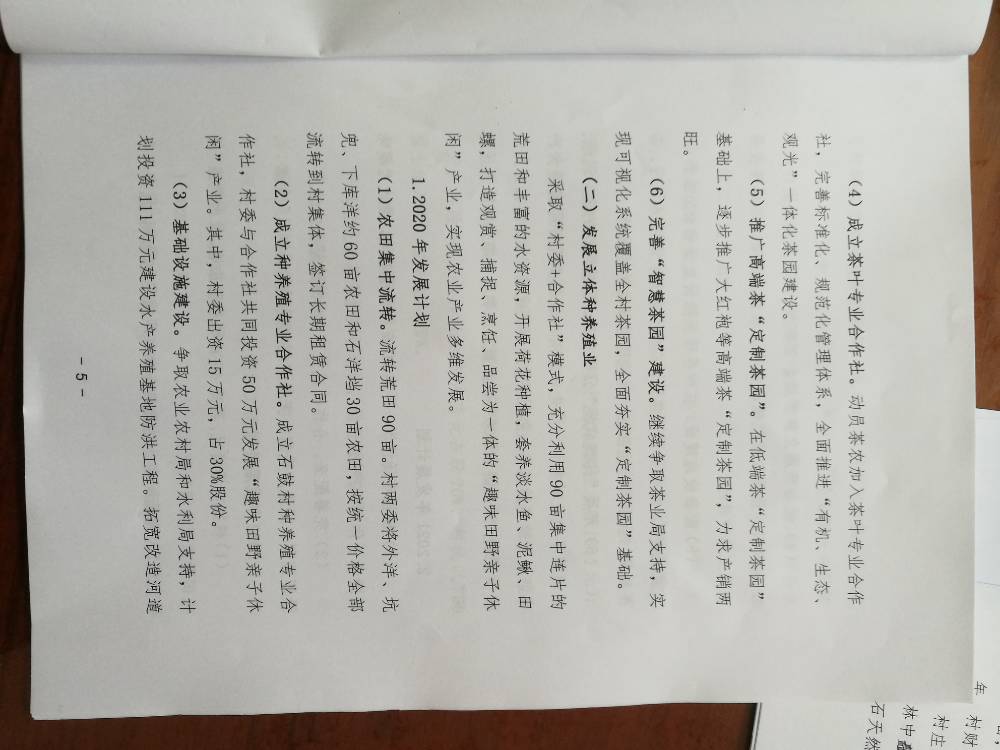 （4）成立茶叶专业合作社。动员茶农加入茶叶专业合作
社，完善标准化、规范化管理体系，全面推进“有机、生态、
观光”一体化茶园建设。
（5）推广高端茶“定制茶园”。在低端茶“定制茶园”
基础上，逐步推广大红袍等高端茶“定制茶园”，力求产销两
旺。
（6）完善“智慧茶园”建设。继续争取茶业局支持，实
现可视化系统覆盖全村茶园，全面夯实“定制茶园”基础。
（二）发展立体种养殖业
采取“村委+合作社”模式，充分利用90亩集中连片的
荒田和丰富的水资源，开展荷花种植，套养淡水鱼、泥鳅、田
螺，打造观赏、捕捉、烹饪、品尝为一体的“趣味田野亲子休
闲”产业，实现农业产业多维发展。
1.2020年发展计划
（1）农田集中流转。流转荒田90亩。村两委将外洋、坑
兜、下库洋约60亩农田和石洋垱30亩农田，按统一价格全部
流转到村集体，签订长期租赁合同。
（2）成立种养殖专业合作社。成立石鼓村种养殖专业合
作社，村委与合作社共同投资50万元发展“趣味田野亲子休
闲”产业。其中，村委出资15万元，占30%股份。
（3）基础设施建设。争取农业农村局和水利局支持，计
划投资111万元建设水产养殖基地防洪工程。拓宽改造河道
- 5 -
年
村财
村庄
林中
石天然